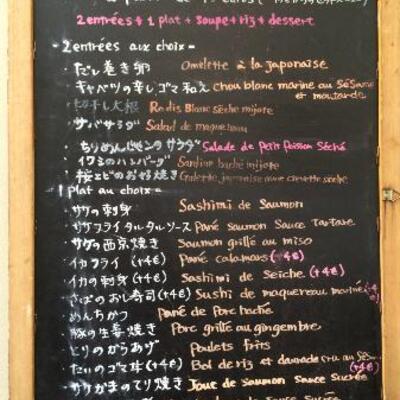 2 entrées + 1 plat + soupe + riz + dessert
2 entrées aux choix =
・だし巻き卵 Omelette à la japonaise
・キャベツの辛しゴマ和え chou blanc marine au sésame et moutarde
・切干し大根 Radis Blanc Séche mijoté
・サバサラダ Salad de maquereau
・ちりめんじゃこと サラダ Salade de Petit Poisson Séché
・イワシのハンバーグ Sardine haché mijoté
・桜エビのお好焼き Galette japonaise avec crevette séché
1 plat au choix =
・サケの刺身 Sashimi de Saumon
・サケフライタルタルソース Pané Saumon Sauce Tartare
・サケの西京焼き Saumon grillé au miso
・イカフライ (+4€) Pané calamars (+4€)
・イカの刺身 (+4€) Sashimi de Seiche (+4€)
・さばのおし寿司 (+4€) Sushi de maquereau mariné
・めんちかつ Pané de Porc haché
・豚の生姜焼き Porc grillé au gingembre
・とりのからあげ Poulets frits
・たいのゴマ丼 (+4€) Bol de riz et daurade cru au sésa (+4€)
・サケかまのてり焼き Joue de saumon sauce sucrée